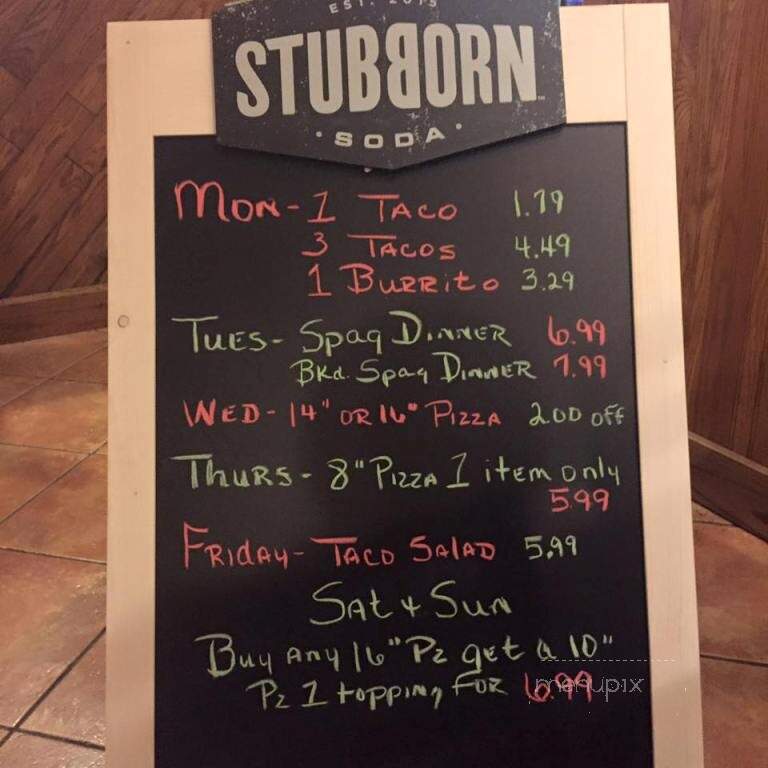 EST. 2015
STUBBORN
SODA
MON - 1 TACO 1.79
3 TACOS 4.49
1 BURRITO 3.29
TUES - Spag DINNER 6.99
Bkd. Spag DINNER 7.99
WED - 14" OR 16" PIZZA 2.00 OFF
THURS - 8" PIZZA 1 item only
5.99
FRIDAY - TACO SALAD 5.99
SAt & SUN
Buy Any 16" Pz get a 10"
Pz 1 topping FOR 6.99
menupix